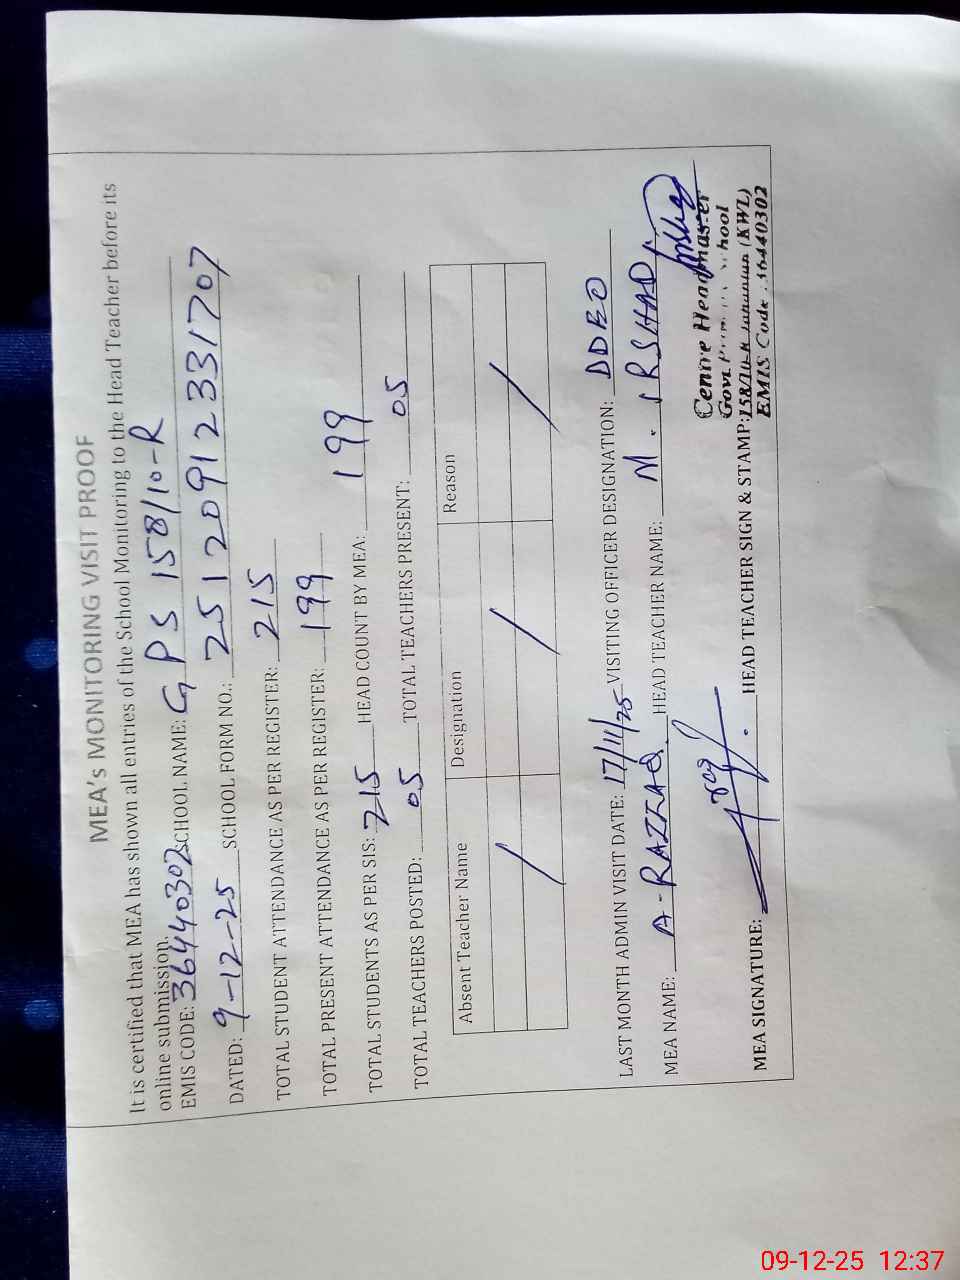 MEA's MONITORING VISIT PROOF
It is certified that MEA has shown all entries of the School Monitoring to the Head Teacher before its
online submission.
EMIS CODE: 36440302 SCHOOL NAME: GPS 158/10-R
DATED: 9-12-25 SCHOOL FORM NO.: 25120912331707
TOTAL STUDENT ATTENDANCE AS PER REGISTER: 215
TOTAL PRESENT ATTENDANCE AS PER REGISTER: 199
TOTAL STUDENTS AS PER SIS: 215 HEAD COUNT BY MEA: 199
TOTAL TEACHERS POSTED: 05 TOTAL TEACHERS PRESENT: 05
Absent Teacher Name Designation Reason
/ / /
LAST MONTH ADMIN VISIT DATE: 17/11/25 VISITING OFFICER DESIGNATION: DDEO
MEA NAME: A-RAZZAQ. HEAD TEACHER NAME: M. IRSHAD
Centre Headmaster
Govt. School
MEA SIGNATURE: HEAD TEACHER SIGN & STAMP: 158/10-R Jahanian (KWL)
EMIS Code: 36440302
09-12-25 12:37